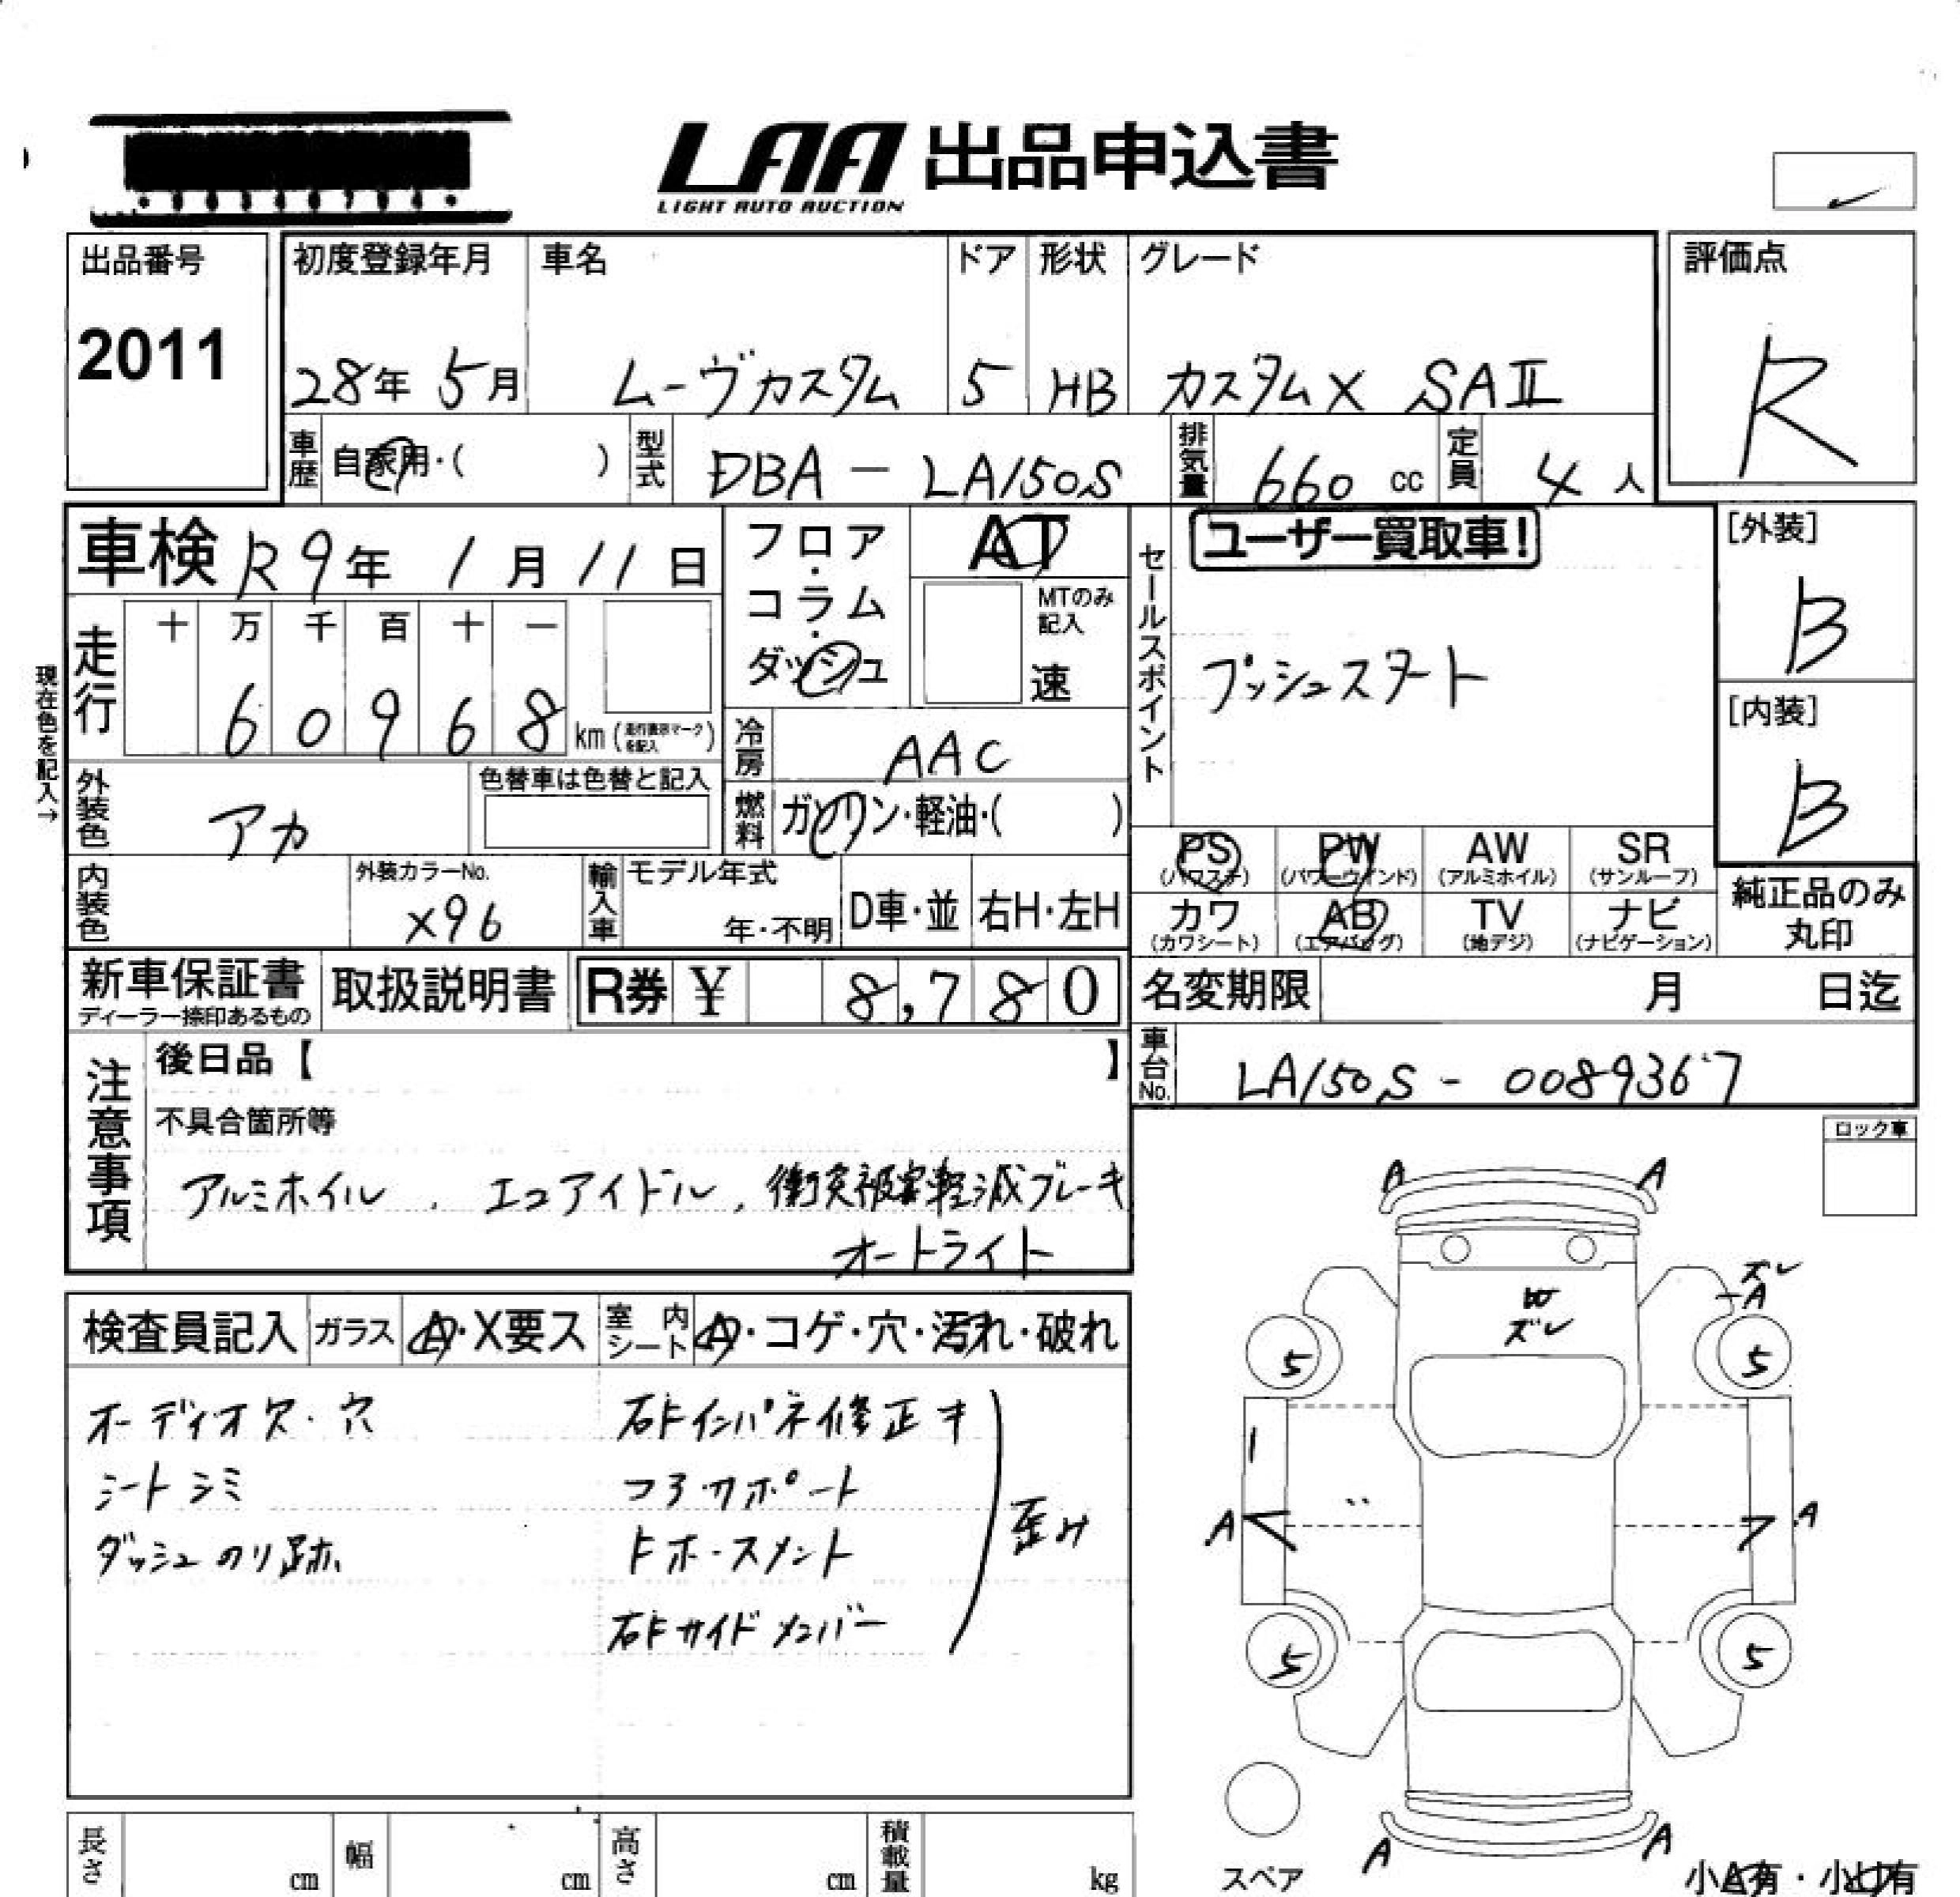 LAA 出品申込書
LIGHT AUTO AUCTION
出品番号 初度登録年月 車名 ドア 形状 グレード 評価点
2011 28年 5月 ムーヴカスタム 5 HB カスタムX SAⅡ R
車歴 自家用・( ) 型式 DBA - LA150S 排気量 660 cc 定員 4 人
車検 R9年 1月 11日
フロア・コラム・ダッシュ
AT
MTのみ記入
速
セールスポイント
ユーザー買取車!
プッシュスタート
[外装]
B
[内装]
B
現在色を記入→
走行 十 万 千 百 十 一
6 0 9 6 8 km (走行表示マークを記入)
冷房 AAC
外装色 アカ
色替車は色替と記入
燃料 ガソリン・軽油・( )
PS (パワステ) PW (パワーウインド) AW (アルミホイル) SR (サンルーフ)
カワ (カワシート) AB (エアバッグ) TV (地デジ) ナビ (ナビゲーション)
純正品のみ丸印
内装色 外装カラーNo. X96
輸入車 モデル年式 年・不明 D車・並 右H・左H
新車保証書 ディーラー捺印あるもの 取扱説明書 R券 ¥ 8,780
名変期限 月 日迄
車台No. LA150S - 0089367
注意事項
後日品【 】
不具合箇所等
アルミホイル、エコアイドル、衝突被害軽減ブレーキ
オートライト
ロック車
検査員記入 ガラス A・X要ス 室内シート A・コゲ・穴・汚れ・破れ
オーディオ欠・穴
シートシミ
ダッシュのり跡
右Fインパネ修正キ
コアサポート
Fホースメント
右Fサイドメンバー
歪み
A A
ズレ
A
W
ズレ
5 5
A A
5 5
A A
スペア
長さ cm 幅 cm 高さ cm 積載量 kg
小A有・小U有